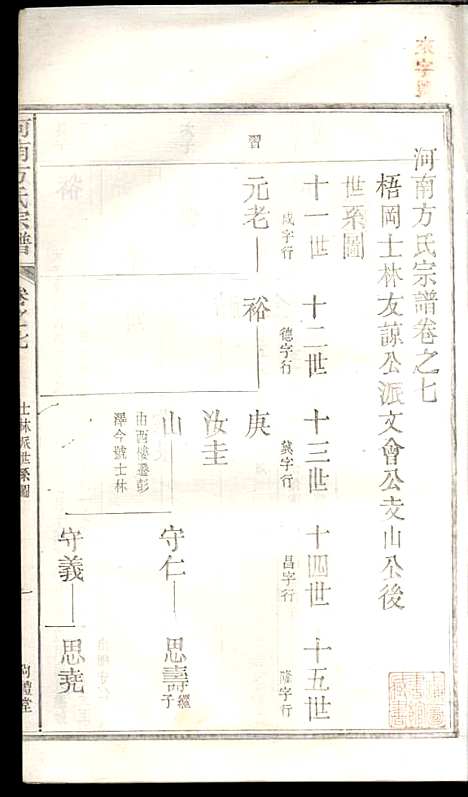 河南方氏宗譜卷之七
梧岡士林友諒公派文會公支山公後
世系圖
十一世 成字行 十二世 德字行 十三世 十四世 昌字行 十五世 隆字行
習
元老 裕 庚
汝圭
山 守仁 思壽 繼子
由西樓遷彭
澤今號士林
守義 思堯
河南方氏宗譜 卷之七 士林派世系圖 一